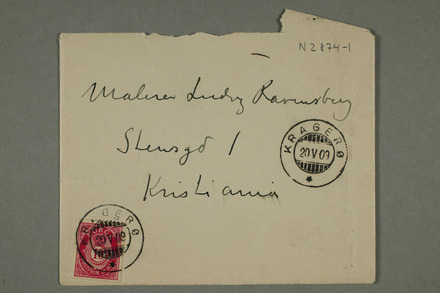 N 2874-1
Maleren Ludvig Ravensberg
Stensgd 1
Kristiania
KRAGERØ
20 V 09
KRAGERØ
20 V 09
10